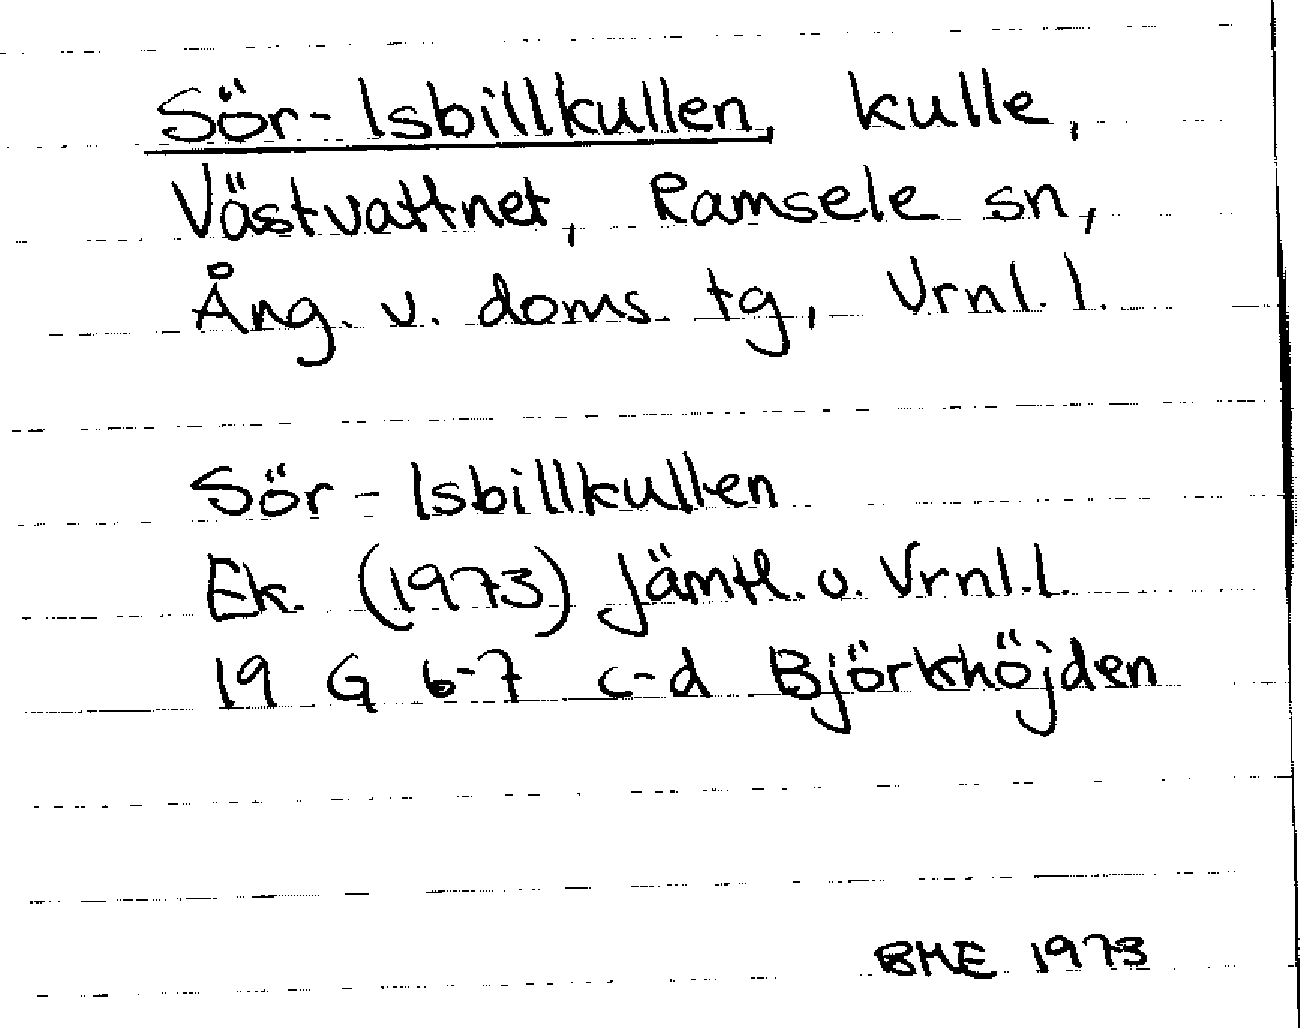 Sör-Isbillkullen, kulle,
Västvattnet, Ramsele sn,
Ång. v. doms. tg, Vrnl. l.
Sör-Isbillkullen
Ek. (1973) Jämtl. o. Vrnl. l.
19 G 6-7 c-d Björkhöjden
BME 1973